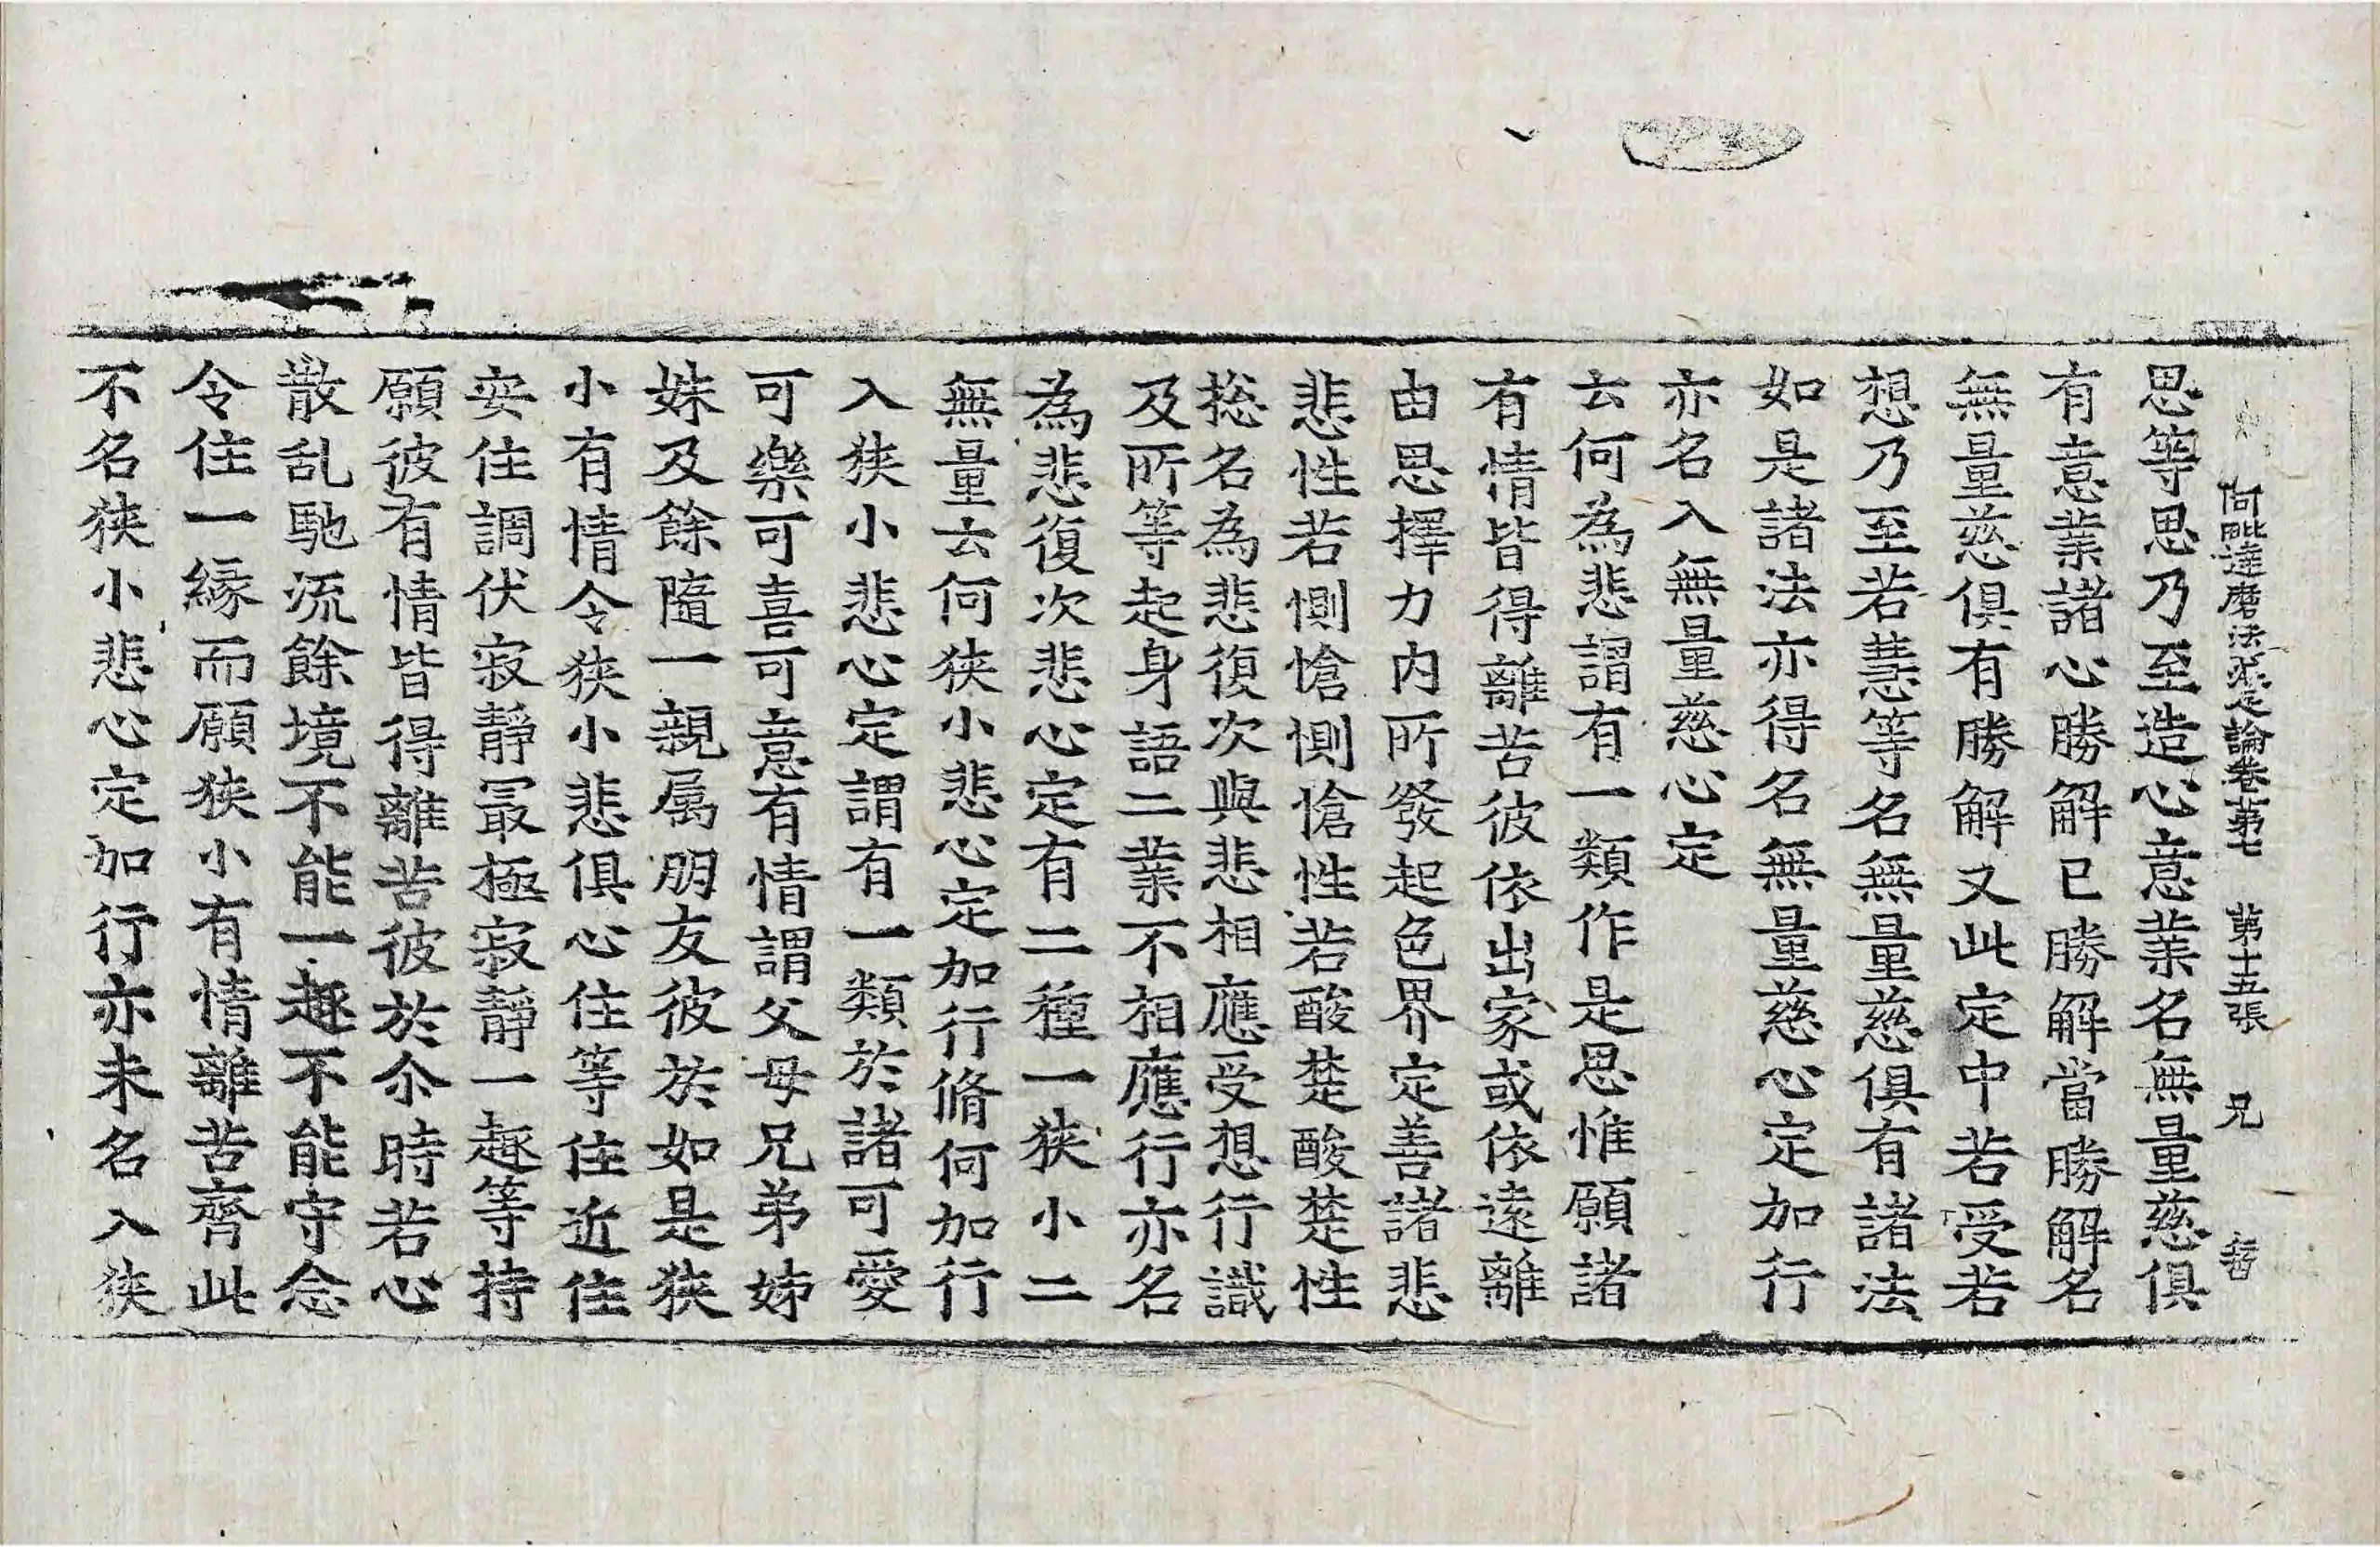 阿毗達磨法蘊足論卷第七 第十五張 兄
思等思乃至造心意業名無量慈俱
有意業諸心勝解已勝解當勝解名
無量慈俱有勝解又此定中若受若
想乃至若慧等名無量慈俱有諸法
如是諸法亦得名無量慈心定加行
亦名入無量慈心定
云何為悲謂有一類作是思惟願諸
有情皆得離苦彼依出家或依遠離
由思擇力內所發起色界定善諸悲
悲性若惻愴惻愴性若酸楚酸楚性
捴名為悲復次與悲相應受想行識
及所等起身語二業不相應行亦名
為悲復次悲心定有二種一狹小二
無量云何狹小悲心定加行脩何加行
入狹小悲心定謂有一類於諸可愛
可樂可喜可意有情謂父母兄弟姊
妹及餘隨一親属朋友彼於如是狹
小有情令狹小悲俱心住等住近住
安住調伏寂靜冣極寂靜一趣等持
願彼有情皆得離苦彼於尒時若心
散乱馳流餘境不能一趣不能守念
令住一緣而願狹小有情離苦齊此
不名狹小悲心定加行亦未名入狹